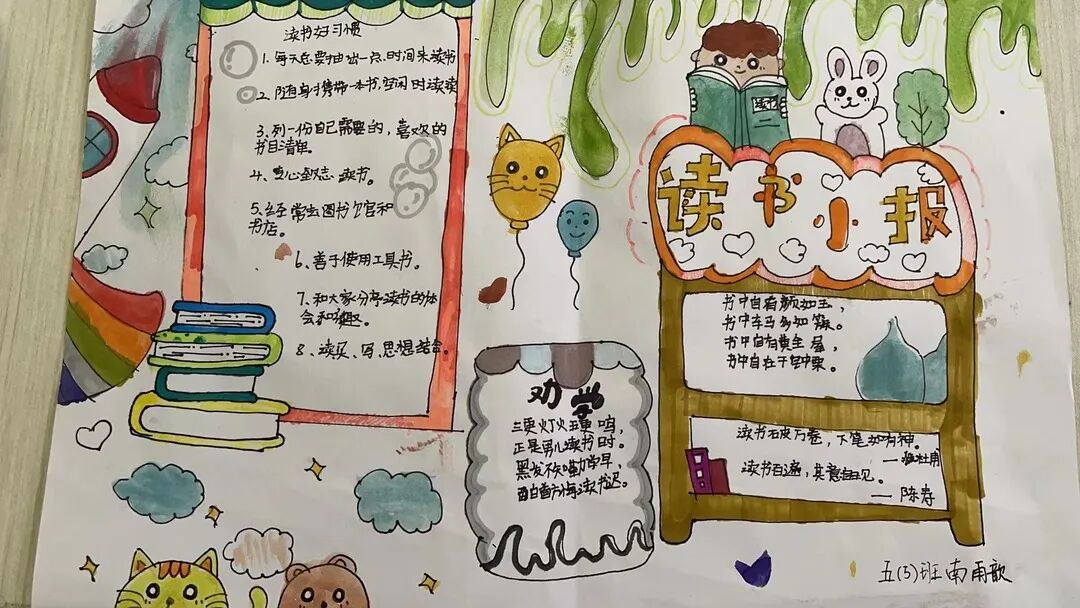 读书好习惯
1.每天总要抽出一点时间来读书
2.随身携带一本书,空闲时读读
3.列一份自己需要的,喜欢的
书目清单。
4.专心致志读书。
5.经常去图书馆和
书店。
6、善于使用工具书。
7.和大家分享读书的体
会和乐趣。
8、读买、写、思想结合。
劝学
三更灯火五更鸣,
正是男儿读书时。
黑发不知勤学早,
白首方悔读书迟。
读书
读书小报
书中自有颜如玉,
书中车马多如簇。
书中自有黄金屋,
书中自有千钟粟。
读书破万卷,下笔如有神。
—杜甫
读书百遍,其意自见。
—陈寿
五(3)班南雨歆